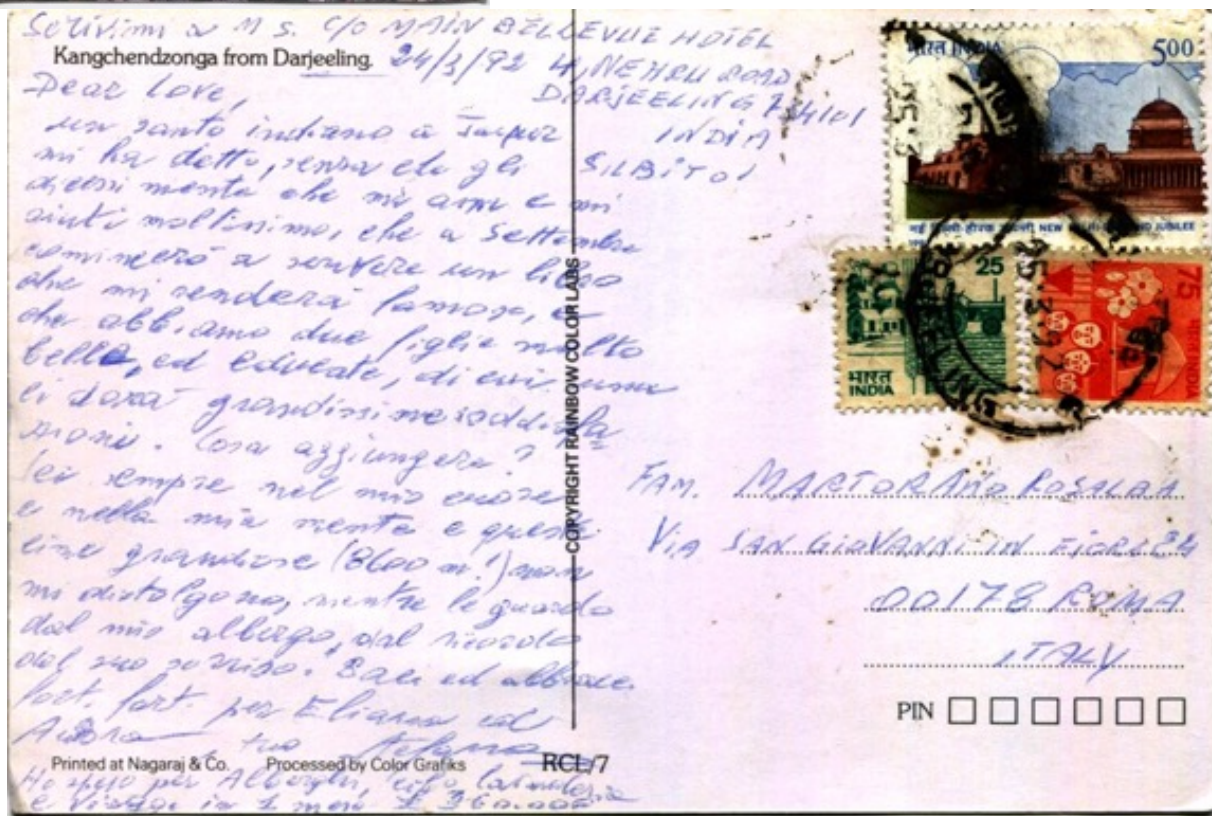 Scrivimi a M S. C/O MAIN BELLEVUE HOTEL
Kangchendzonga from Darjeeling.
24/3/92 4, NEHRU ROAD
DARJEELING 734101
INDIA
Dear Love,
un santo indiano a Jaipur
mi ha detto, senza che gli
dicessi niente che mi ami e mi
aiuti moltissimo, che a Settembre
comincerò a scrivere un libro
che mi renderà famoso, e
che abbiamo due figlie molto
belle, ed educate, di cui una
ci darà grandissime soddisfa
zioni. Cosa aggiungere?
Sei sempre nel mio cuore
e nella mia mente e queste
cime grandiose (8600 m.!) non
mi distolgono, mentre le guardo
dal mio albergo, dal ricordo
del tuo sorriso. Baci ed abbracci
fort. fort. per Eliana ed
tuo
Printed at Nagaraj & Co. Processed by Color Grafiks RCL/7
Ho speso per Alberghi, cibo, lavanderia
e viaggi in 1 mese £ 360.000
COPYRIGHT RAINBOW COLOR LABS
भारत INDIA 500
NEW DELHI JUBILEE
25
भारत
INDIA
75
INDIA
FAM. MARTORANO
VIA SAN GIOVANNI IN FIORE 24
00178 ROMA
ITALY
PIN